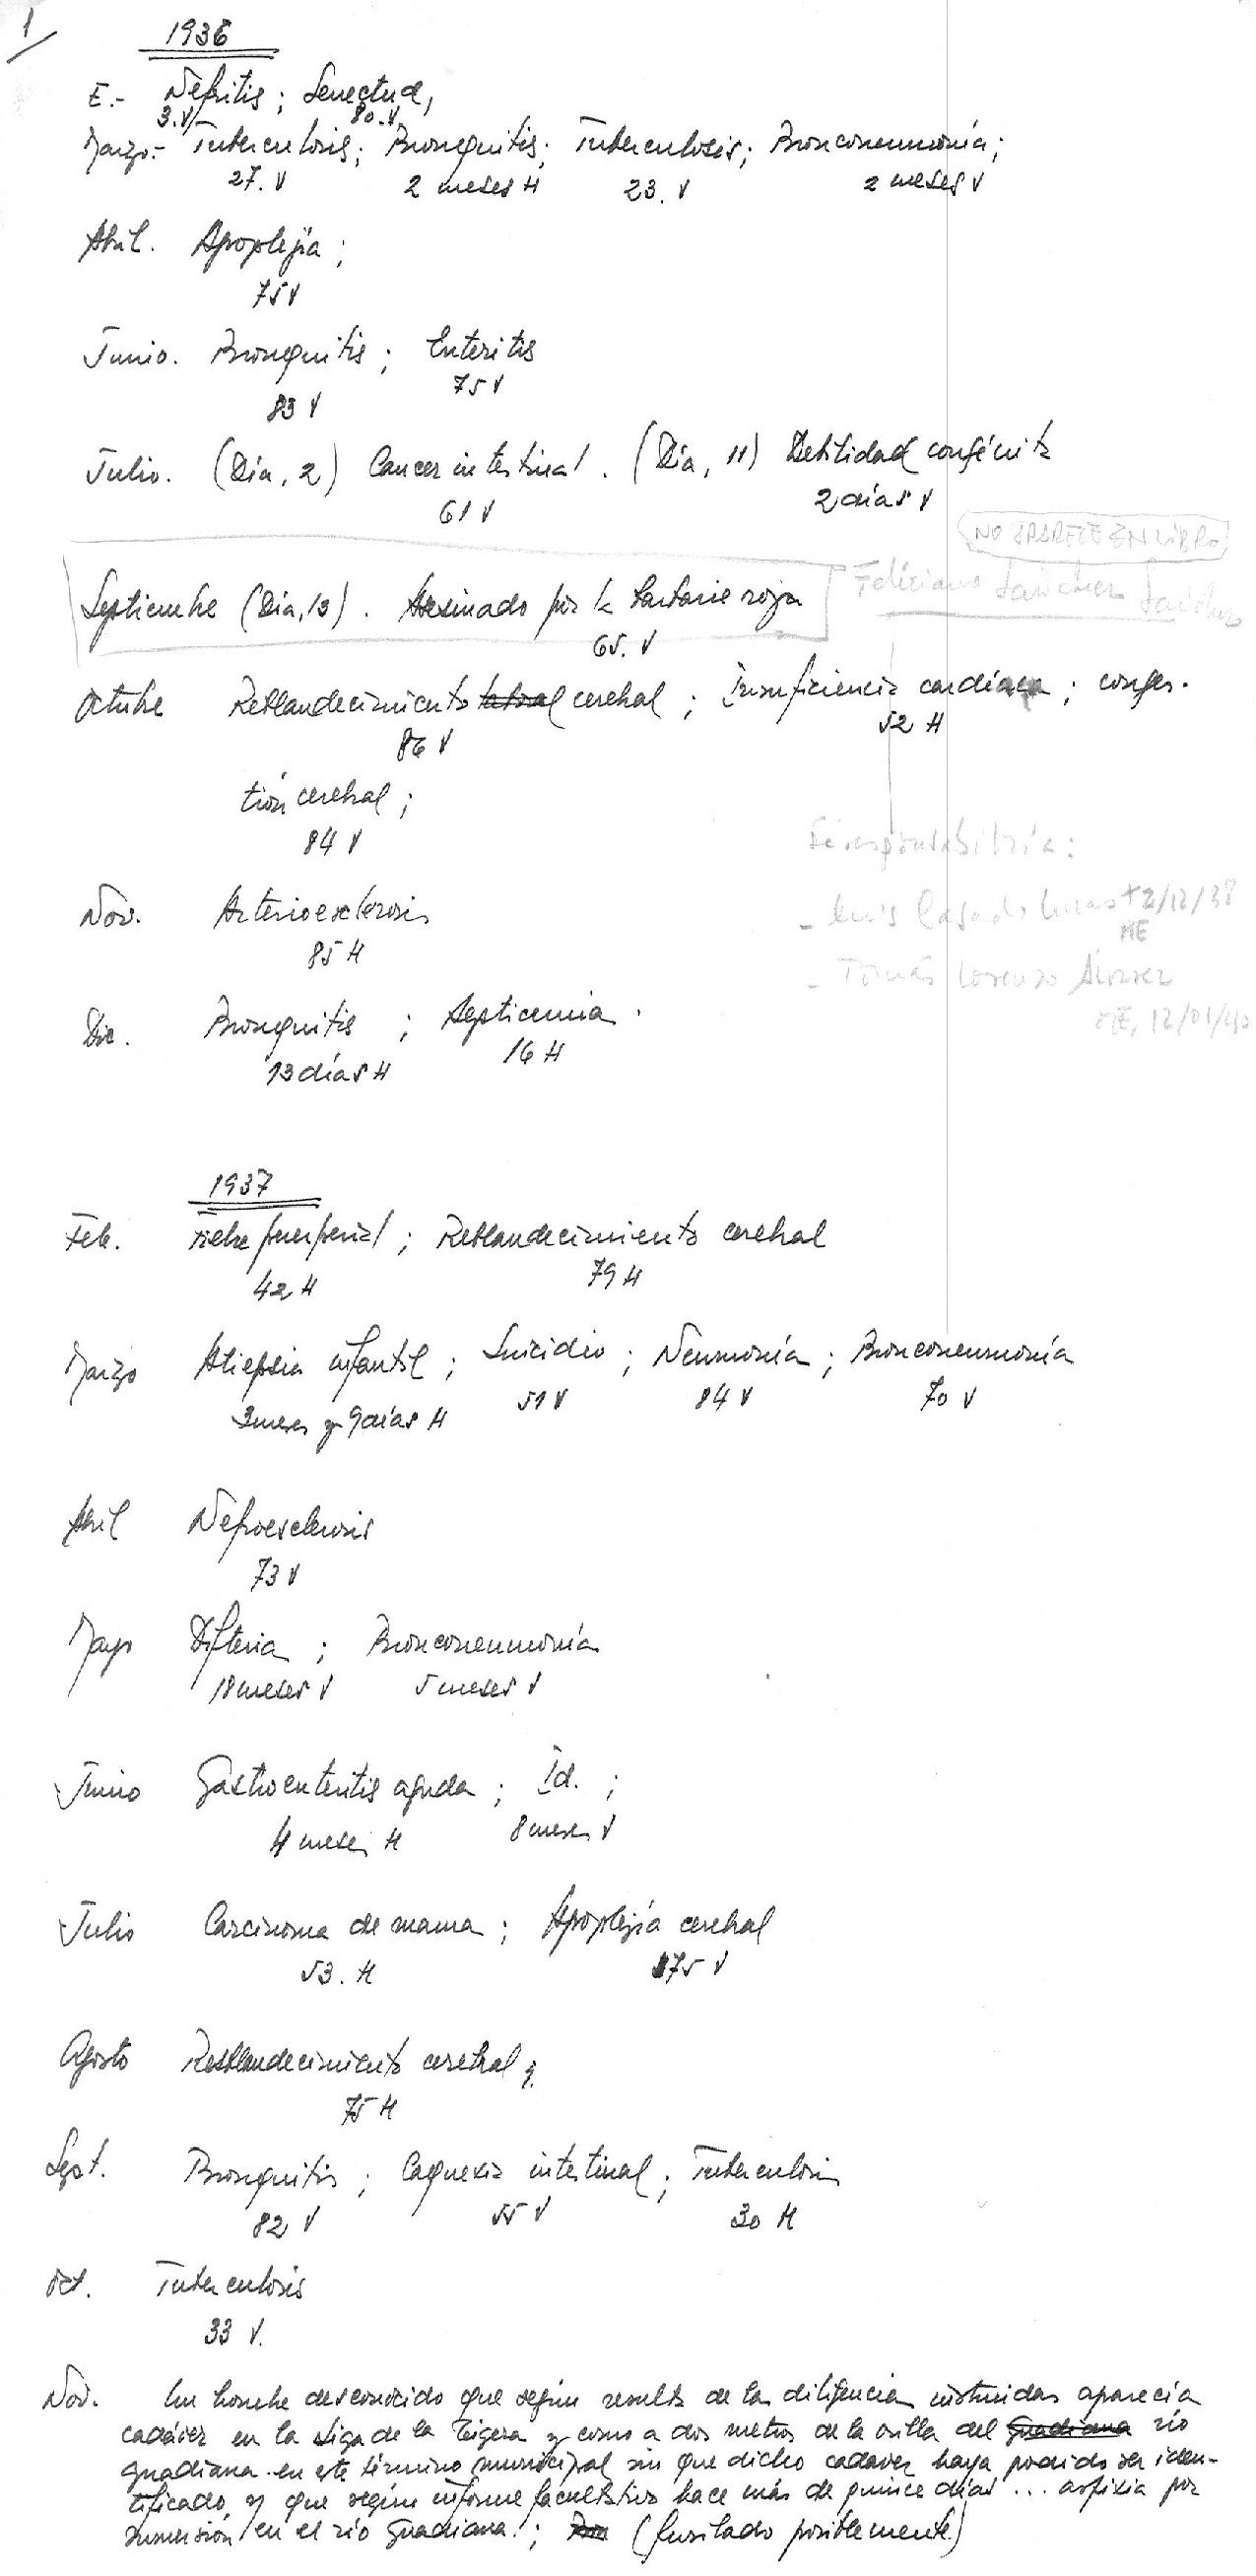 1
1936
E.- Nefritis; Senectud,
3.V 80.V
Marzo.- Tuberculosis; Bronquitis; Tuberculosis; Bronconeumonía;
27.V 2 meses H 23.V 2 meses V
Abril. Apoplejía;
75 V
Junio. Bronquitis; Enteritis
83 V 75 V
Julio. (Día, 2) Cancer intestinal. (Día, 11) Debilidad congénita
61 V 2 días V
NO APARECE EN LIBRO
Septiembre (Día, 13). Asesinado por la barbarie roja Feliciano Sánchez Sánchez
65. V
Octubre Reblandecimiento cerebral; Insuficiencia cardíaca; conges-
86 V 52 H
tión cerebral;
84 V
Se responsabiliza:
Nov. Arterioesclerosis - Luis Casado Lucas +2/12/38
85 H ME
- Tomás Lorenzo Álvarez
Dic. Bronquitis; Septicemia. ME, 12/01/40
13 días H 16 H
1937
Feb. Fiebre puerperal; Reblandecimiento cerebral
42 H 79 H
Marzo Atrepsia infantil; Suicidio; Neumonía; Bronconeumonía
3 meses y 9 días H 51 V 84 V 70 V
Abril Nefroesclerosis
73 V
Mayo Difteria; Bronconeumonía
18 meses V 5 meses V
Junio Gastroenteritis aguda; Id.;
4 meses H 8 meses V
Julio Carcinoma de mama; Apoplejía cerebral
53. H 75 V
Agosto Reblandecimiento cerebral;
75 H
Sept. Bronquitis; Caquexia intestinal; Tuberculosis
82 V 55 V 30 H
Oct. Tuberculosis
33 V.
Nov. Un hombre desconocido que según resulta de la diligencia instruidas aparecía
cadáver en la de la y como a dos metros de la orilla del Guadiana río
Guadiana en este término municipal sin que dicho cadaver haya podido ser iden-
tificado, y que según informe facultativo hace más de quince días ... asfixia por
inmersión en el río Guadiana.; (fusilado posiblemente)